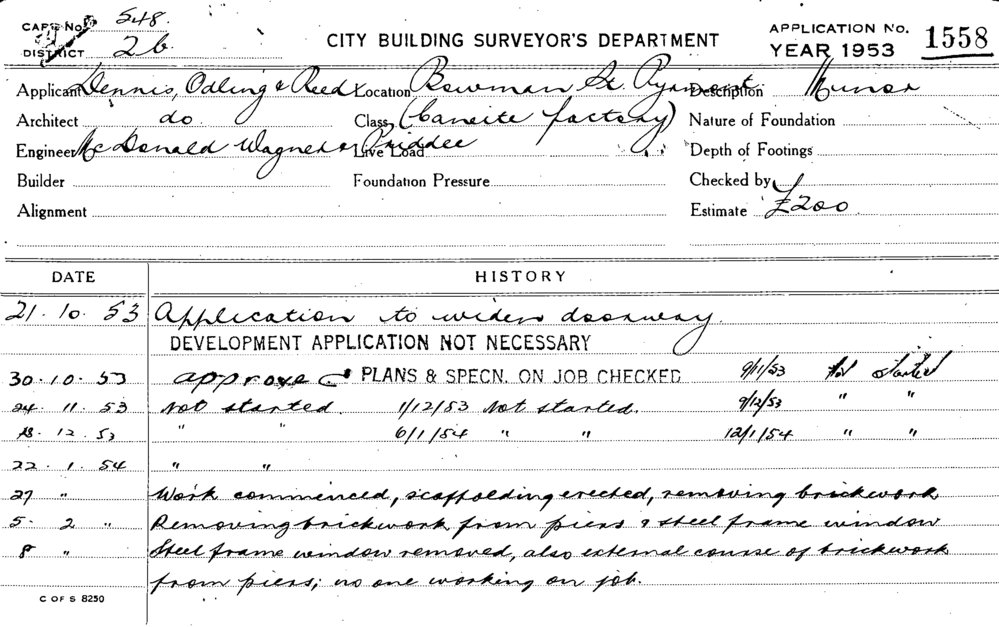 CARD No. 548.
DISTRICT 2b
CITY BUILDING SURVEYOR'S DEPARTMENT
APPLICATION No. 1558
YEAR 1953
Applicant Dennis, Odling & Reed Location Bowman St. Pyrmont Description Minor
Architect do. Class (Caneite factory) Nature of Foundation
Engineer McDonald Wagner & Priddle Live Load Depth of Footings
Builder Foundation Pressure Checked by
Alignment Estimate £200
DATE HISTORY
21.10.53 Application to widen doorway.
DEVELOPMENT APPLICATION NOT NECESSARY
30.10.53 approve PLANS & SPECN. ON JOB CHECKED 9/11/53 Not started
24.11.53 Not started. 1/12/53 Not started. 9/12/53 " "
12.53 " " 6/1/54 " " 12/1/54 " "
22.1.54 " "
27 " Work commenced, scaffolding erected, removing brickwork
5. 2 " Removing brickwork from piers & steel frame window
8 " Steel frame window removed, also external course of brickwork
from piers; no one working on job.
C OF S 8250